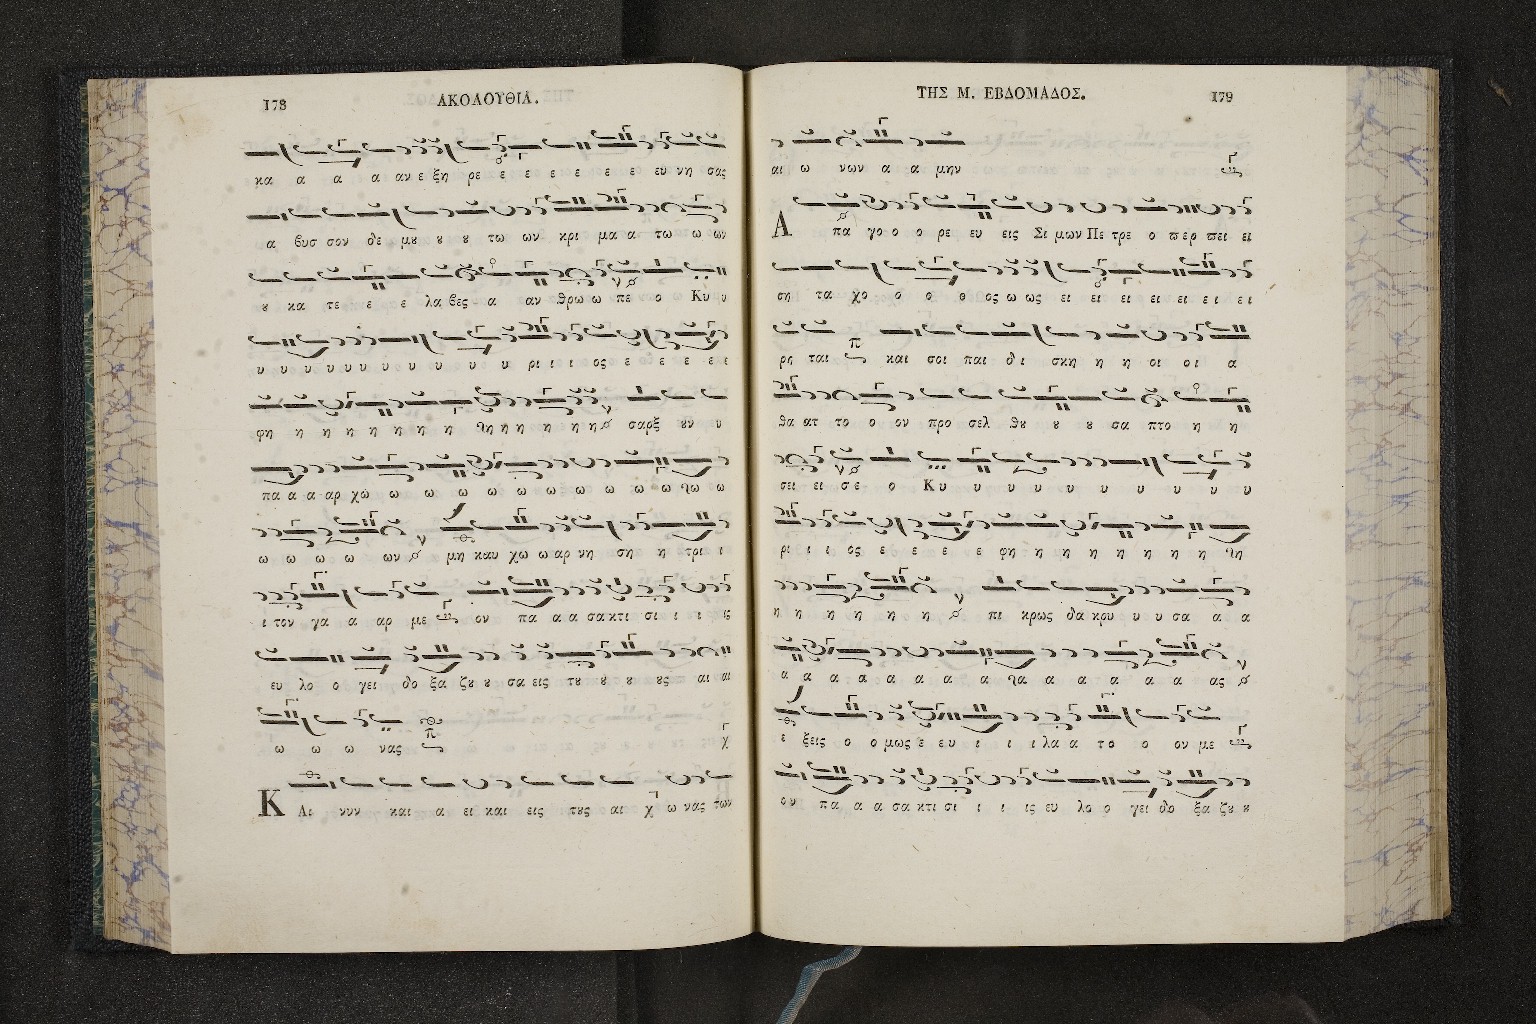 178
ΑΚΟΛΟΥΘΙΑ.
κα α α α αν ε ξη ρε ε ε ε ε ε ε ευ νη σας
α βυσ σον δε μȣ ȣ ȣ τω ων κρι μα α τω ω ων
ȣ κα τε ε ε λα βες α αν θρω ω πε ο Κυ υ
υ υ υ υ υ υ υ υ υ υ υ ρι ι ι ος ε ε ε ε ει
φη η η η η η η η η η η η η η σαρξ ȣν υ
πα α α αρ χω ω ω ω ω ω ω ω ω ω ω ω ω ω
ω ω ω ω ων μη καυ χω ω αρ νη ση η τρι ι
ι τον γα α αρ με ον πα α α σα κτι σι ι ι ις
ευ λο ο γει δο ξα ζȣ ȣ σα εις τȣ ȣ ȣ ȣς αι αι
ω ω ω νας
ΚΑι νυν και α ει και εις τȣς αι ω νας των
ΤΗΣ Μ. ΕΒΔΟΜΑΔΟΣ.
179
αι ω νων α α μην
Α πα γο ο ο ρε ευ εις Σι μων Πε τρε ο περ πει ει
ση τα χο ο ο ο ος ω ως ει ει ει ει ει ει ει
ρη ται και σοι παι δι σκη η η οι οι α
θα ατ το ο ον προ σελ θȣ ȣ ȣ σα πτο η η
σει ει σε ο Κυ υ υ υ υ υ υ υ υ
ρι ι ι ος ε ε ε ε φη η η η η η η η η
η η η η η η πι κρως δα κρυ υ υ σα α α
α α α α α α α α α α α α α α ας
ε ξεις ο ο μως ε ευ ι ι ι λα α το ο ον με
ον πα α α σα κτι σι ι ι ις ευ λο ο γει δο ξα ζȣ ȣ